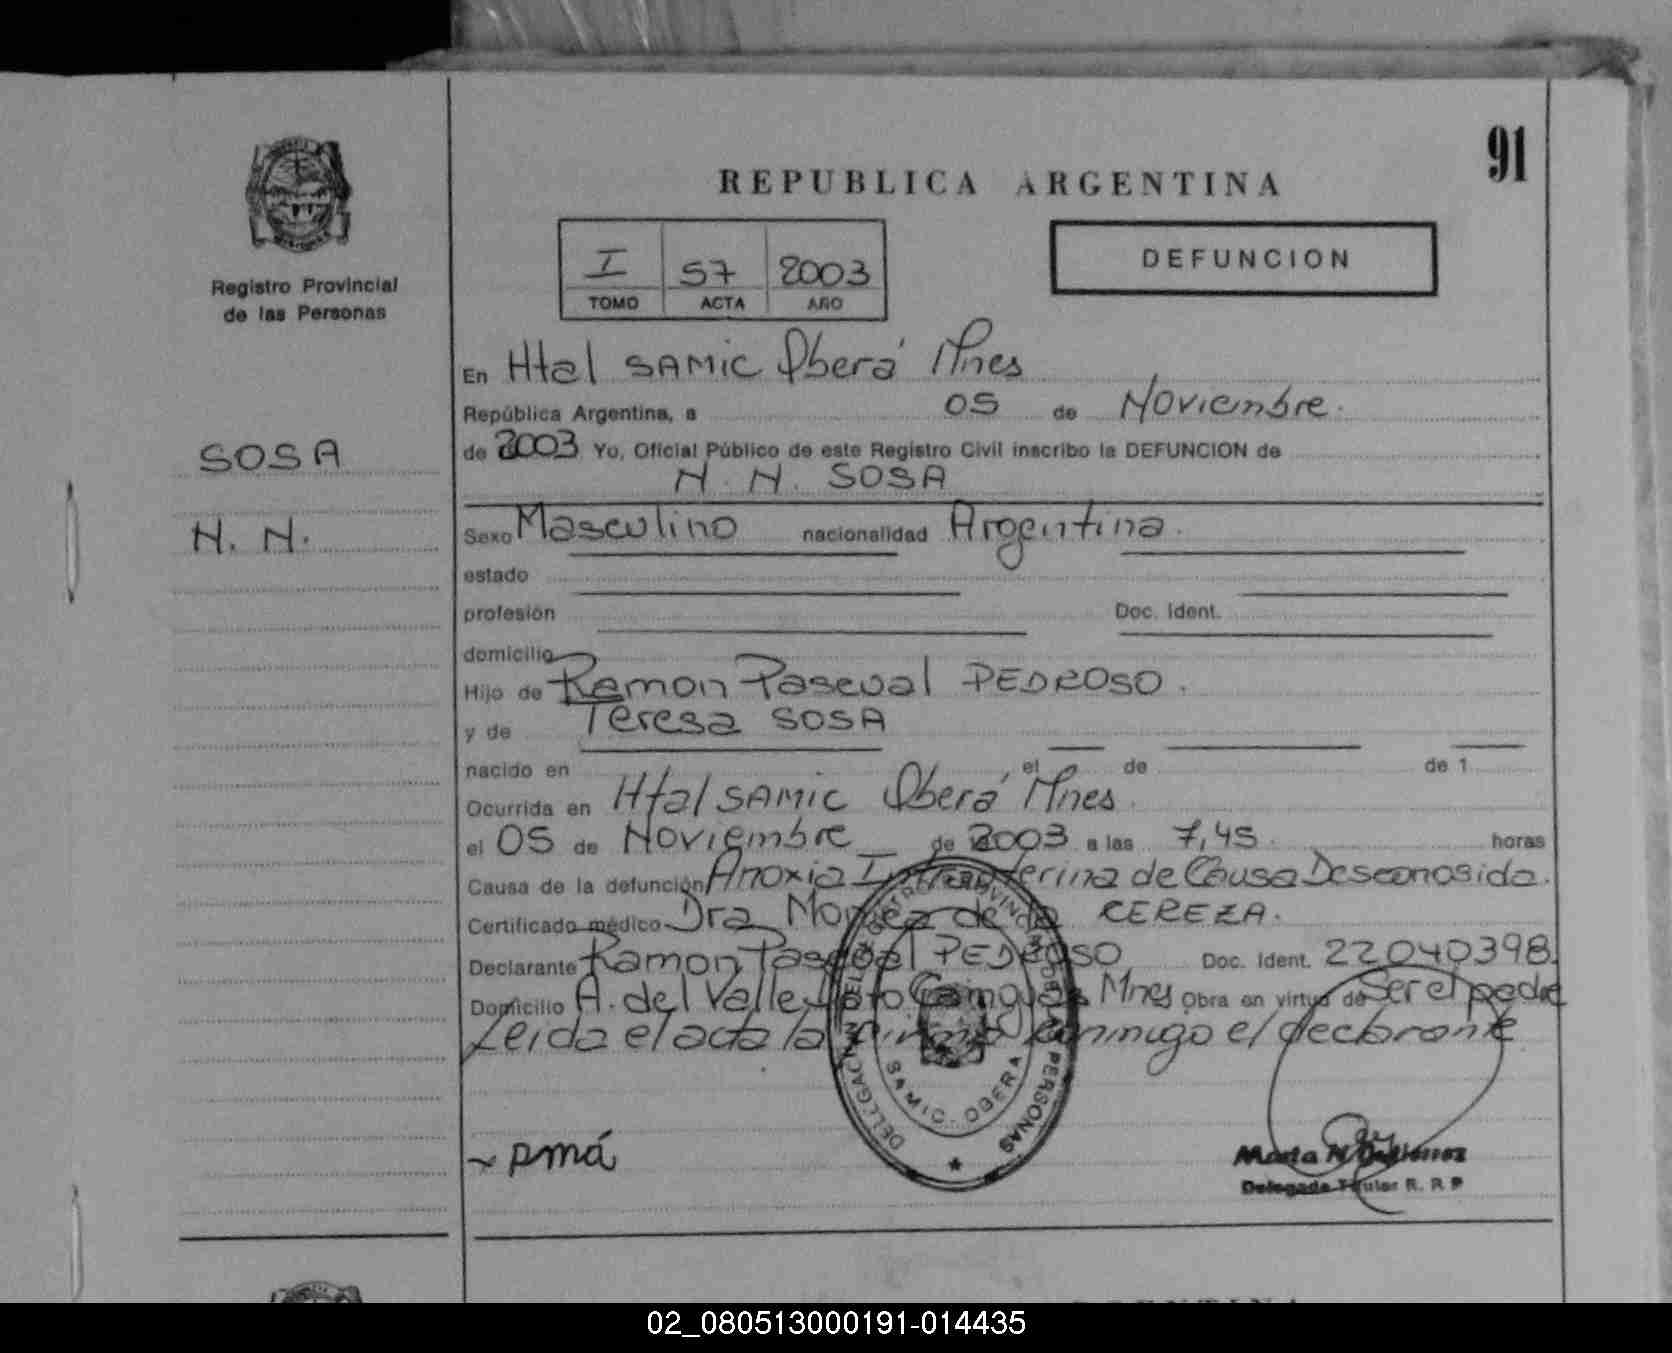 91
REPUBLICA ARGENTINA
Registro Provincial
de las Personas
I 57 2003
TOMO ACTA AÑO
DEFUNCION
SOSA
N. N.
En Htal SAMIC Oberá Mnes
República Argentina, a 05 de Noviembre.
de 2003 Yo, Oficial Público de este Registro Civil inscribo la DEFUNCION de
N. N. SOSA
Sexo Masculino nacionalidad Argentina.
estado
profesión Doc. Ident.
domicilio
Hijo de Ramon Pascual PEDROSO.
y de Teresa SOSA
nacido en el de de 1
Ocurrida en Htal SAMIC Oberá Mnes.
el 05 de Noviembre de 2003 a las 7,45. horas
Causa de la defunción Anoxia Intrauterina de Causa Desconosida.
Certificado médico Dra Monica de la CEREZA.
Declarante Ramon Pascual PEDROSO Doc. Ident. 22040398.
Domicilio A. del Valle Mnes Obra en virtud de Ser el padre
Leida el acta la firma conmigo el declarante
DELEGACION DEL REGISTRO PROVINCIAL DE LAS PERSONAS
SAMIC - OBERA
Delegada Titular R. P. P.
02_080513000191-014435